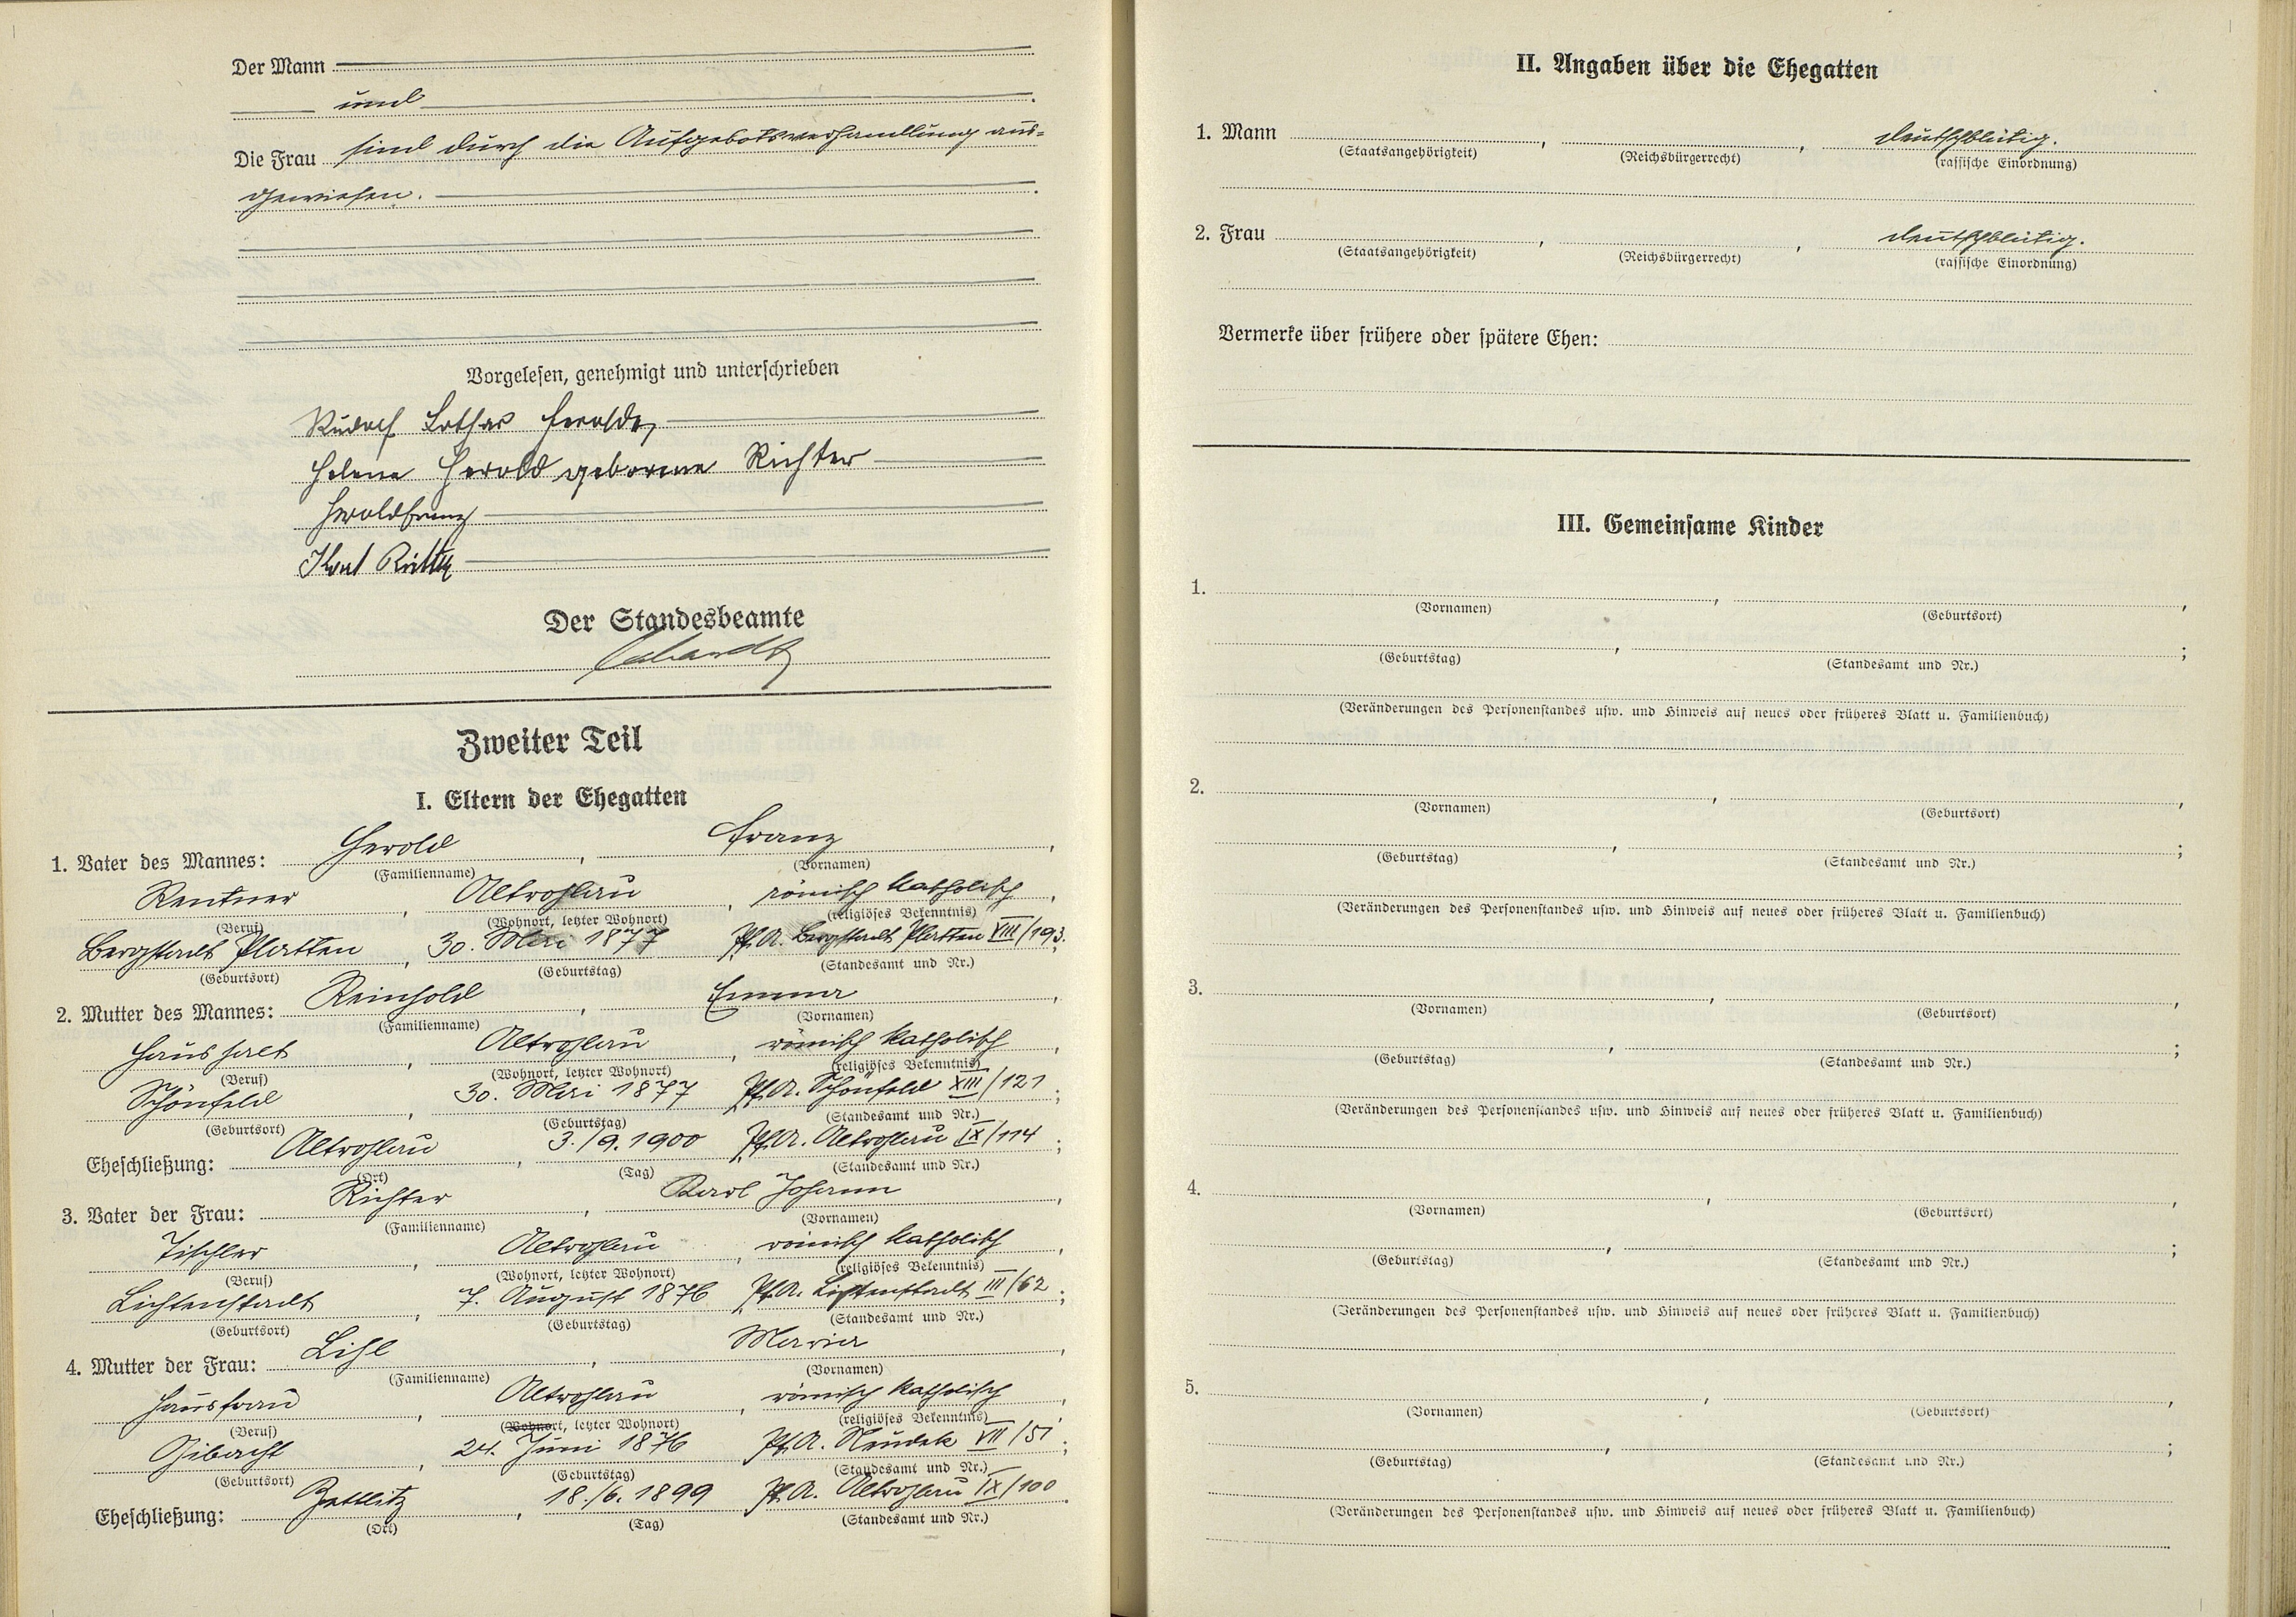 Der Mann
und
Die Frau sind durch die Aufgebotsverhandlung aus-
gewiesen.
Vorgelesen, genehmigt und unterschrieben
Rudolf Lothar Herold
Helene Herold geborene Richter
Herold Franz
Der Standesbeamte
Zweiter Teil
I. Eltern der Ehegatten
1. Vater des Mannes: Herold, Franz,
(Familienname) (Vornamen)
Rentner, Altrohlau, römisch katholisch,
(Beruf) (Wohnort, letzter Wohnort) (religiöses Bekenntnis)
Bergstadt Platten, 30. Mai 1877 Pf.A. Bergstadt Platten XIII/193;
(Geburtsort) (Geburtstag) (Standesamt und Nr.)
2. Mutter des Mannes: Reinhold, Emma,
(Familienname) (Vornamen)
Haushalt, Altrohlau, römisch katholisch,
(Beruf) (Wohnort, letzter Wohnort) (religiöses Bekenntnis)
Schönfeld, 30. Mai 1877 Pf.A. Schönfeld XIII/121;
(Geburtsort) (Geburtstag) (Standesamt und Nr.)
Eheschließung: Altrohlau, 3./9.1900 Pf.A. Altrohlau IX/114;
(Ort) (Tag) (Standesamt und Nr.)
3. Vater der Frau: Richter, Karl Johann,
(Familienname) (Vornamen)
Tischler, Altrohlau, römisch katholisch,
(Beruf) (Wohnort, letzter Wohnort) (religiöses Bekenntnis)
Lichtenstadt, 7. August 1876 Pf.A. Lichtenstadt III/62;
(Geburtsort) (Geburtstag) (Standesamt und Nr.)
4. Mutter der Frau: Lihl, Maria,
(Familienname) (Vornamen)
Hausfrau, Altrohlau, römisch katholisch,
(Beruf) (Wohnort, letzter Wohnort) (religiöses Bekenntnis)
Gibacht, 24. Juni 1876 Pf.A. Neudek VII/51;
(Geburtsort) (Geburtstag) (Standesamt und Nr.)
Eheschließung: Zettlitz, 18./6.1899 Pf.A. Altrohlau IX/100.
(Ort) (Tag) (Standesamt und Nr.)
II. Angaben über die Ehegatten
1. Mann , , deutschblütig.
(Staatsangehörigkeit) (Reichsbürgerrecht) (rassische Einordnung)
2. Frau , , deutschblütig.
(Staatsangehörigkeit) (Reichsbürgerrecht) (rassische Einordnung)
Vermerke über frühere oder spätere Ehen:
III. Gemeinsame Kinder
1. , ,
(Vornamen) (Geburtsort)
, ;
(Geburtstag) (Standesamt und Nr.)
(Veränderungen des Personenstandes usw. und Hinweis auf neues oder früheres Blatt u. Familienbuch)
2. , ,
(Vornamen) (Geburtsort)
, ;
(Geburtstag) (Standesamt und Nr.)
(Veränderungen des Personenstandes usw. und Hinweis auf neues oder früheres Blatt u. Familienbuch)
3. , ,
(Vornamen) (Geburtsort)
, ;
(Geburtstag) (Standesamt und Nr.)
(Veränderungen des Personenstandes usw. und Hinweis auf neues oder früheres Blatt u. Familienbuch)
4. , ,
(Vornamen) (Geburtsort)
, ;
(Geburtstag) (Standesamt und Nr.)
(Veränderungen des Personenstandes usw. und Hinweis auf neues oder früheres Blatt u. Familienbuch)
5. , ,
(Vornamen) (Geburtsort)
, ;
(Geburtstag) (Standesamt und Nr.)
(Veränderungen des Personenstandes usw. und Hinweis auf neues oder früheres Blatt u. Familienbuch)